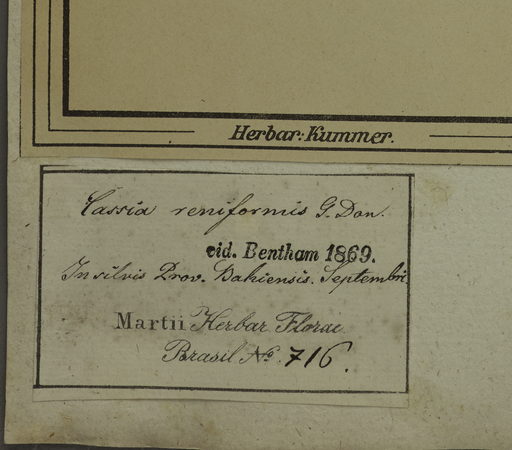 Herbar: Kummer.
Cassia reniformis G. Don.
vid. Bentham 1869.
In silvis Prov. Bahiensis. Septembri.
Martii Herbar. Florae
Brasil No. 716.